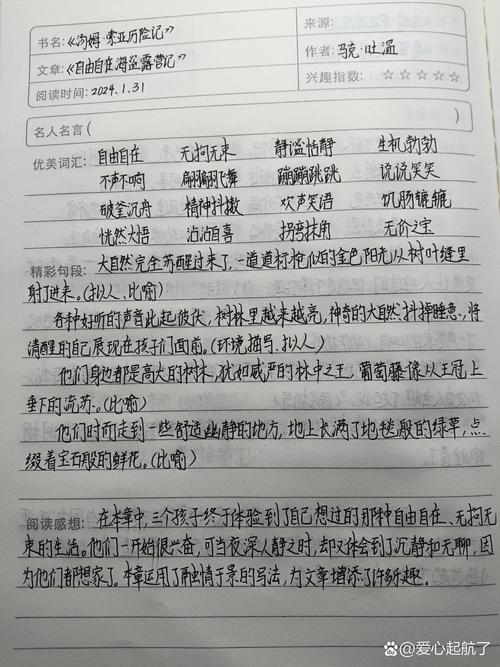 书名:《汤姆·索亚历险记》
来源:
文章:《自由自在海盗露营记》
作者:马克·吐温
阅读时间:2024.1.31
兴趣指数:☆☆☆☆☆
名人名言(
)
优美词汇: 自由自在 无拘无束 静谧恬静 生机勃勃
不声不响 翩翩飞舞 蹦蹦跳跳 说说笑笑
破釜沉舟 精神抖擞 欢声笑语 饥肠辘辘
恍然大悟 沾沾自喜 拐弯抹角 无价之宝
精彩句段: 大自然完全苏醒过来了,一道道标枪似的金色阳光从树叶缝里
射了进来。(拟人、比喻)
各种好听的声音此起彼伏,树林里越来越亮,神奇的大自然抖掉睡意,将
清醒的自己展现在孩子们面前。(环境描写、拟人)
他们身边都是高大的树林,犹如威严的林中之王,葡萄藤像从王冠上
垂下的流苏。(比喻)
他们时而走到一些舒适幽静的地方,地上长满了地毯般的绿草,点
缀着宝石般的鲜花。(比喻)
阅读感想: 在本章中,三个孩子终于体验到了自己想过的那种自由自在、无拘无
束的生活。他们一开始很兴奋,可当夜深人静之时,却又体会到了沉静和无聊,因
为他们都想家了。本章运用了融情于景的写法,为文章增添了许多趣。
爱心起航了